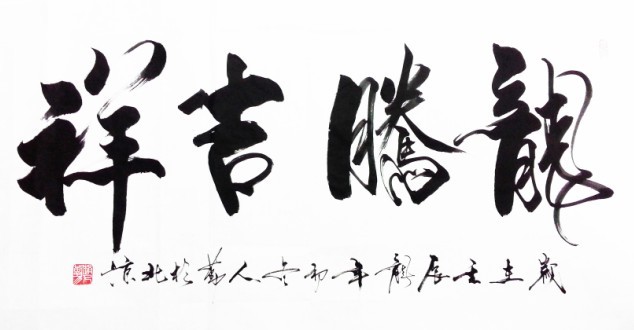 龍騰吉祥
歲在壬辰龍年冬人於北京